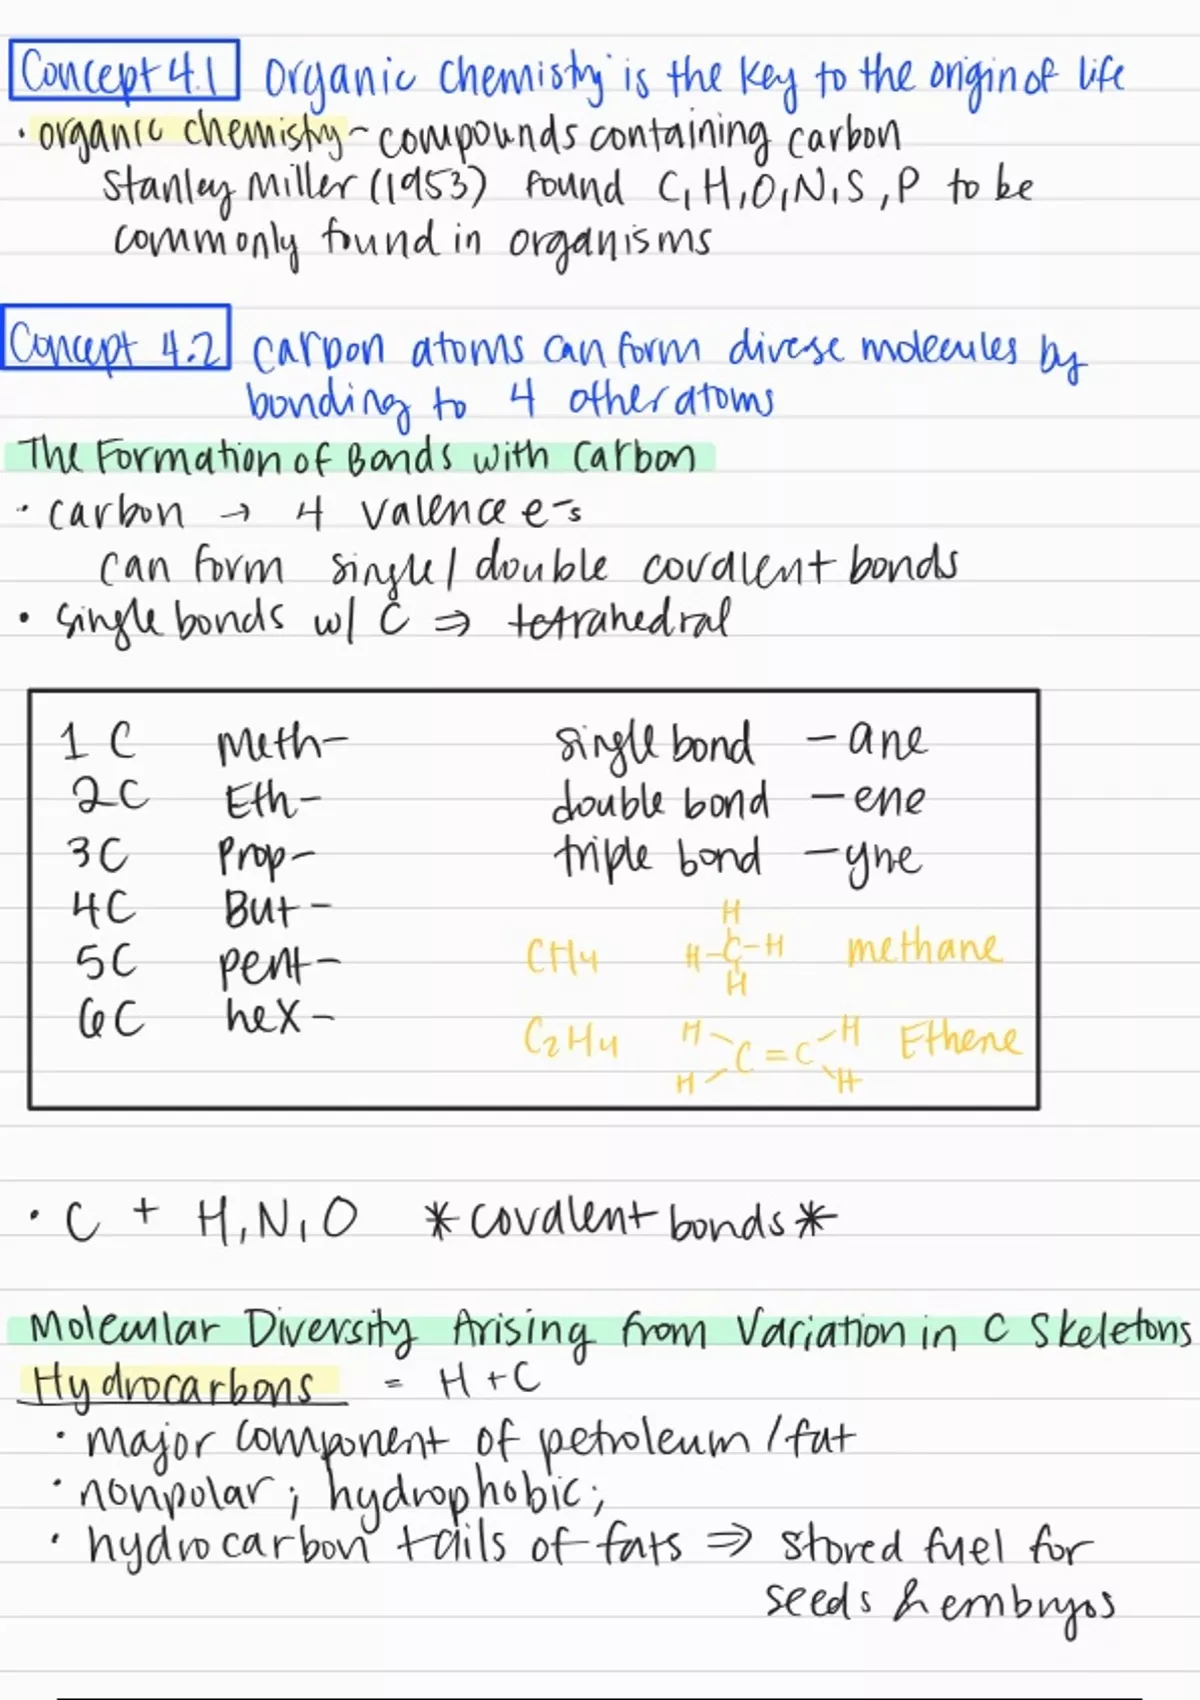 Concept 4.1 Organic chemistry is the key to the origin of life
• organic chemistry - compounds containing carbon
Stanley Miller (1953) found C, H, O, N, S, P to be
commonly found in organisms
Concept 4.2 carbon atoms can form diverse molecules by
bonding to 4 other atoms
The Formation of Bonds with Carbon
• carbon → 4 valence e-s
can form single/double covalent bonds
• single bonds w/ C ⇒ tetrahedral
1 C Meth- single bond -ane
2C Eth- double bond -ene
3C Prop- triple bond -yne
4C But-
H
5C pent- CH4 H-C-H methane
H
6C hex- C2H4 H H Ethene
C=C
H H
• C + H, N, O *covalent bonds*
Molecular Diversity Arising from Variation in C Skeletons
Hydrocarbons = H+C
• major component of petroleum/fat
• nonpolar; hydrophobic;
• hydrocarbon tails of fats ⇒ stored fuel for
seeds & embryos